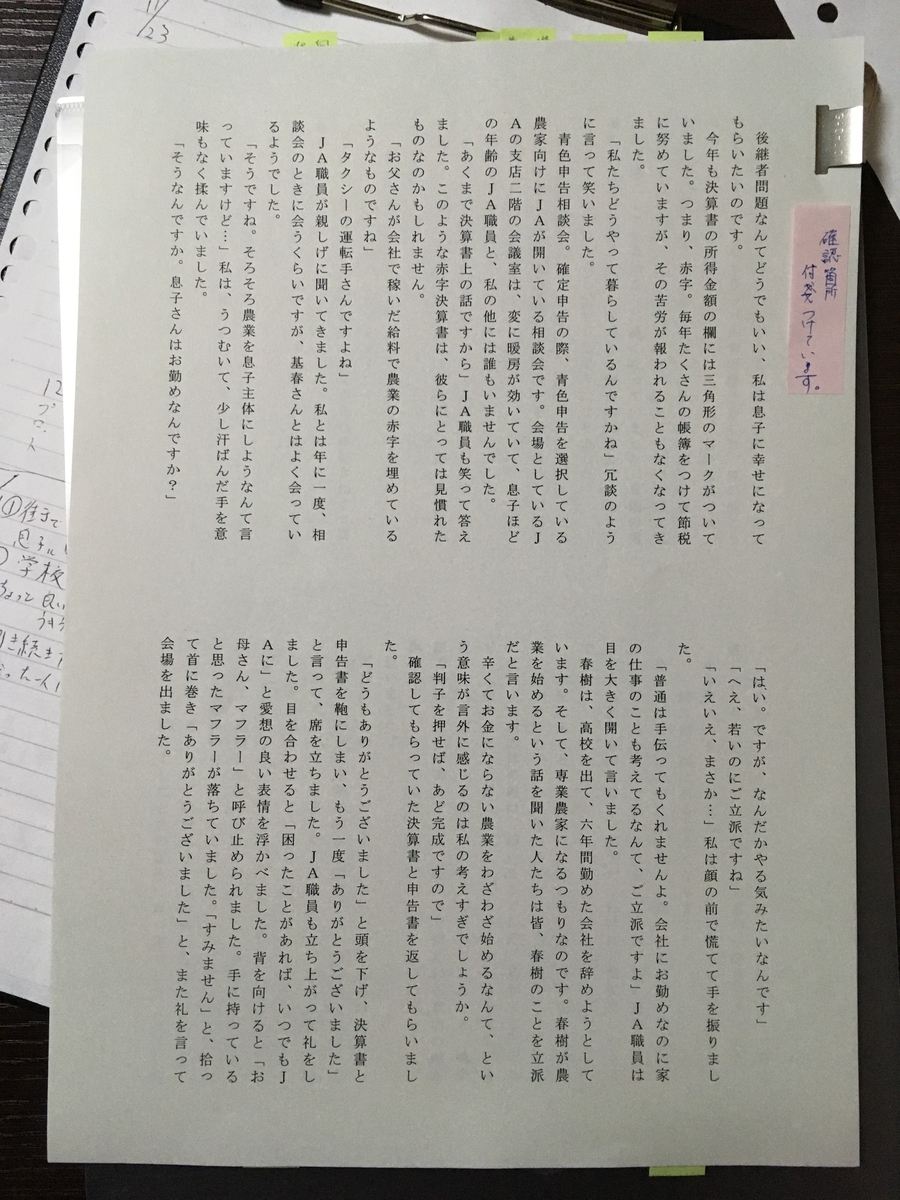 確認箇所
付箋つけています。
後継者問題なんてどうでもいい、私は息子に幸せになって
もらいたいのです。
今年も決算書の所得金額の欄には三角形のマークがついて
いました。つまり、赤字。毎年たくさんの帳簿をつけて節税
に努めていますが、その苦労が報われることもなくなってき
ました。
「私たちどうやって暮らしているんですかね」冗談のよう
に言って笑いました。
青色申告相談会。確定申告の際、青色申告を選択している
農家向けにJAが開いている相談会です。会場としているJ
Aの支店二階の会議室は、変に暖房が効いていて、息子ほど
の年齢のJA職員と、私の他には誰もいませんでした。
「あくまで決算書上の話ですから」JA職員も笑って答え
ました。このような赤字決算書は、彼らにとっては見慣れた
ものなのかもしれません。
「お父さんが会社で稼いだ給料で農業の赤字を埋めている
ようなものですね」
「タクシーの運転手さんですよね」
JA職員が親しげに聞いてきました。私とは年に一度、相
談会のときに会うくらいですが、基春さんとはよく会ってい
るようでした。
「そうですね。そろそろ農業を息子主体にしようなんて言
っていますけど…」私は、うつむいて、少し汗ばんだ手を意
味もなく揉んでいました。
「そうなんですか。息子さんはお勤めなんですか？」
「はい。ですが、なんだかやる気みたいなんです」
「へえ、若いのにご立派ですね」
「いえいえ、まさか…」私は顔の前で慌てて手を振りまし
た。
「普通は手伝ってもくれませんよ。会社にお勤めなのに家
の仕事のことも考えてるなんて、ご立派ですよ」JA職員は
目を大きく開いて言いました。
春樹は、高校を出て、六年間勤めた会社を辞めようとして
います。そして、専業農家になるつもりなのです。春樹が農
業を始めるという話を聞いた人たちは皆、春樹のことを立派
だと言います。
辛くてお金にならない農業をわざわざ始めるなんて、とい
う意味が言外に感じるのは私の考えすぎでしょうか。
「判子を押せば、あど完成ですので」
確認してもらっていた決算書と申告書を返してもらいまし
た。
「どうもありがとうございました」と頭を下げ、決算書と
申告書を鞄にしまい、もう一度「ありがとうございました」
と言って、席を立ちました。JA職員も立ち上がって礼をし
ました。目を合わせると「困ったことがあれば、いつでもJ
Aに」と愛想の良い表情を浮かべました。背を向けると「お
母さん、マフラー」と呼び止められました。手に持っている
と思ったマフラーが落ちていました。「すみません」と、拾っ
て首に巻き「ありがとうございました」と、また礼を言って
会場を出ました。
11/23
12
プロット
学校